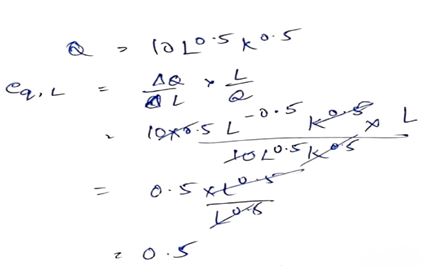 Q = 10L^0.5 K^0.5
e_q,L = ΔQ/ΔL × L/Q
= 10×0.5 L^-0.5 K^0.5 × L / 10L^0.5 K^0.5
= 0.5 × L^0.5 / L^0.5
= 0.5